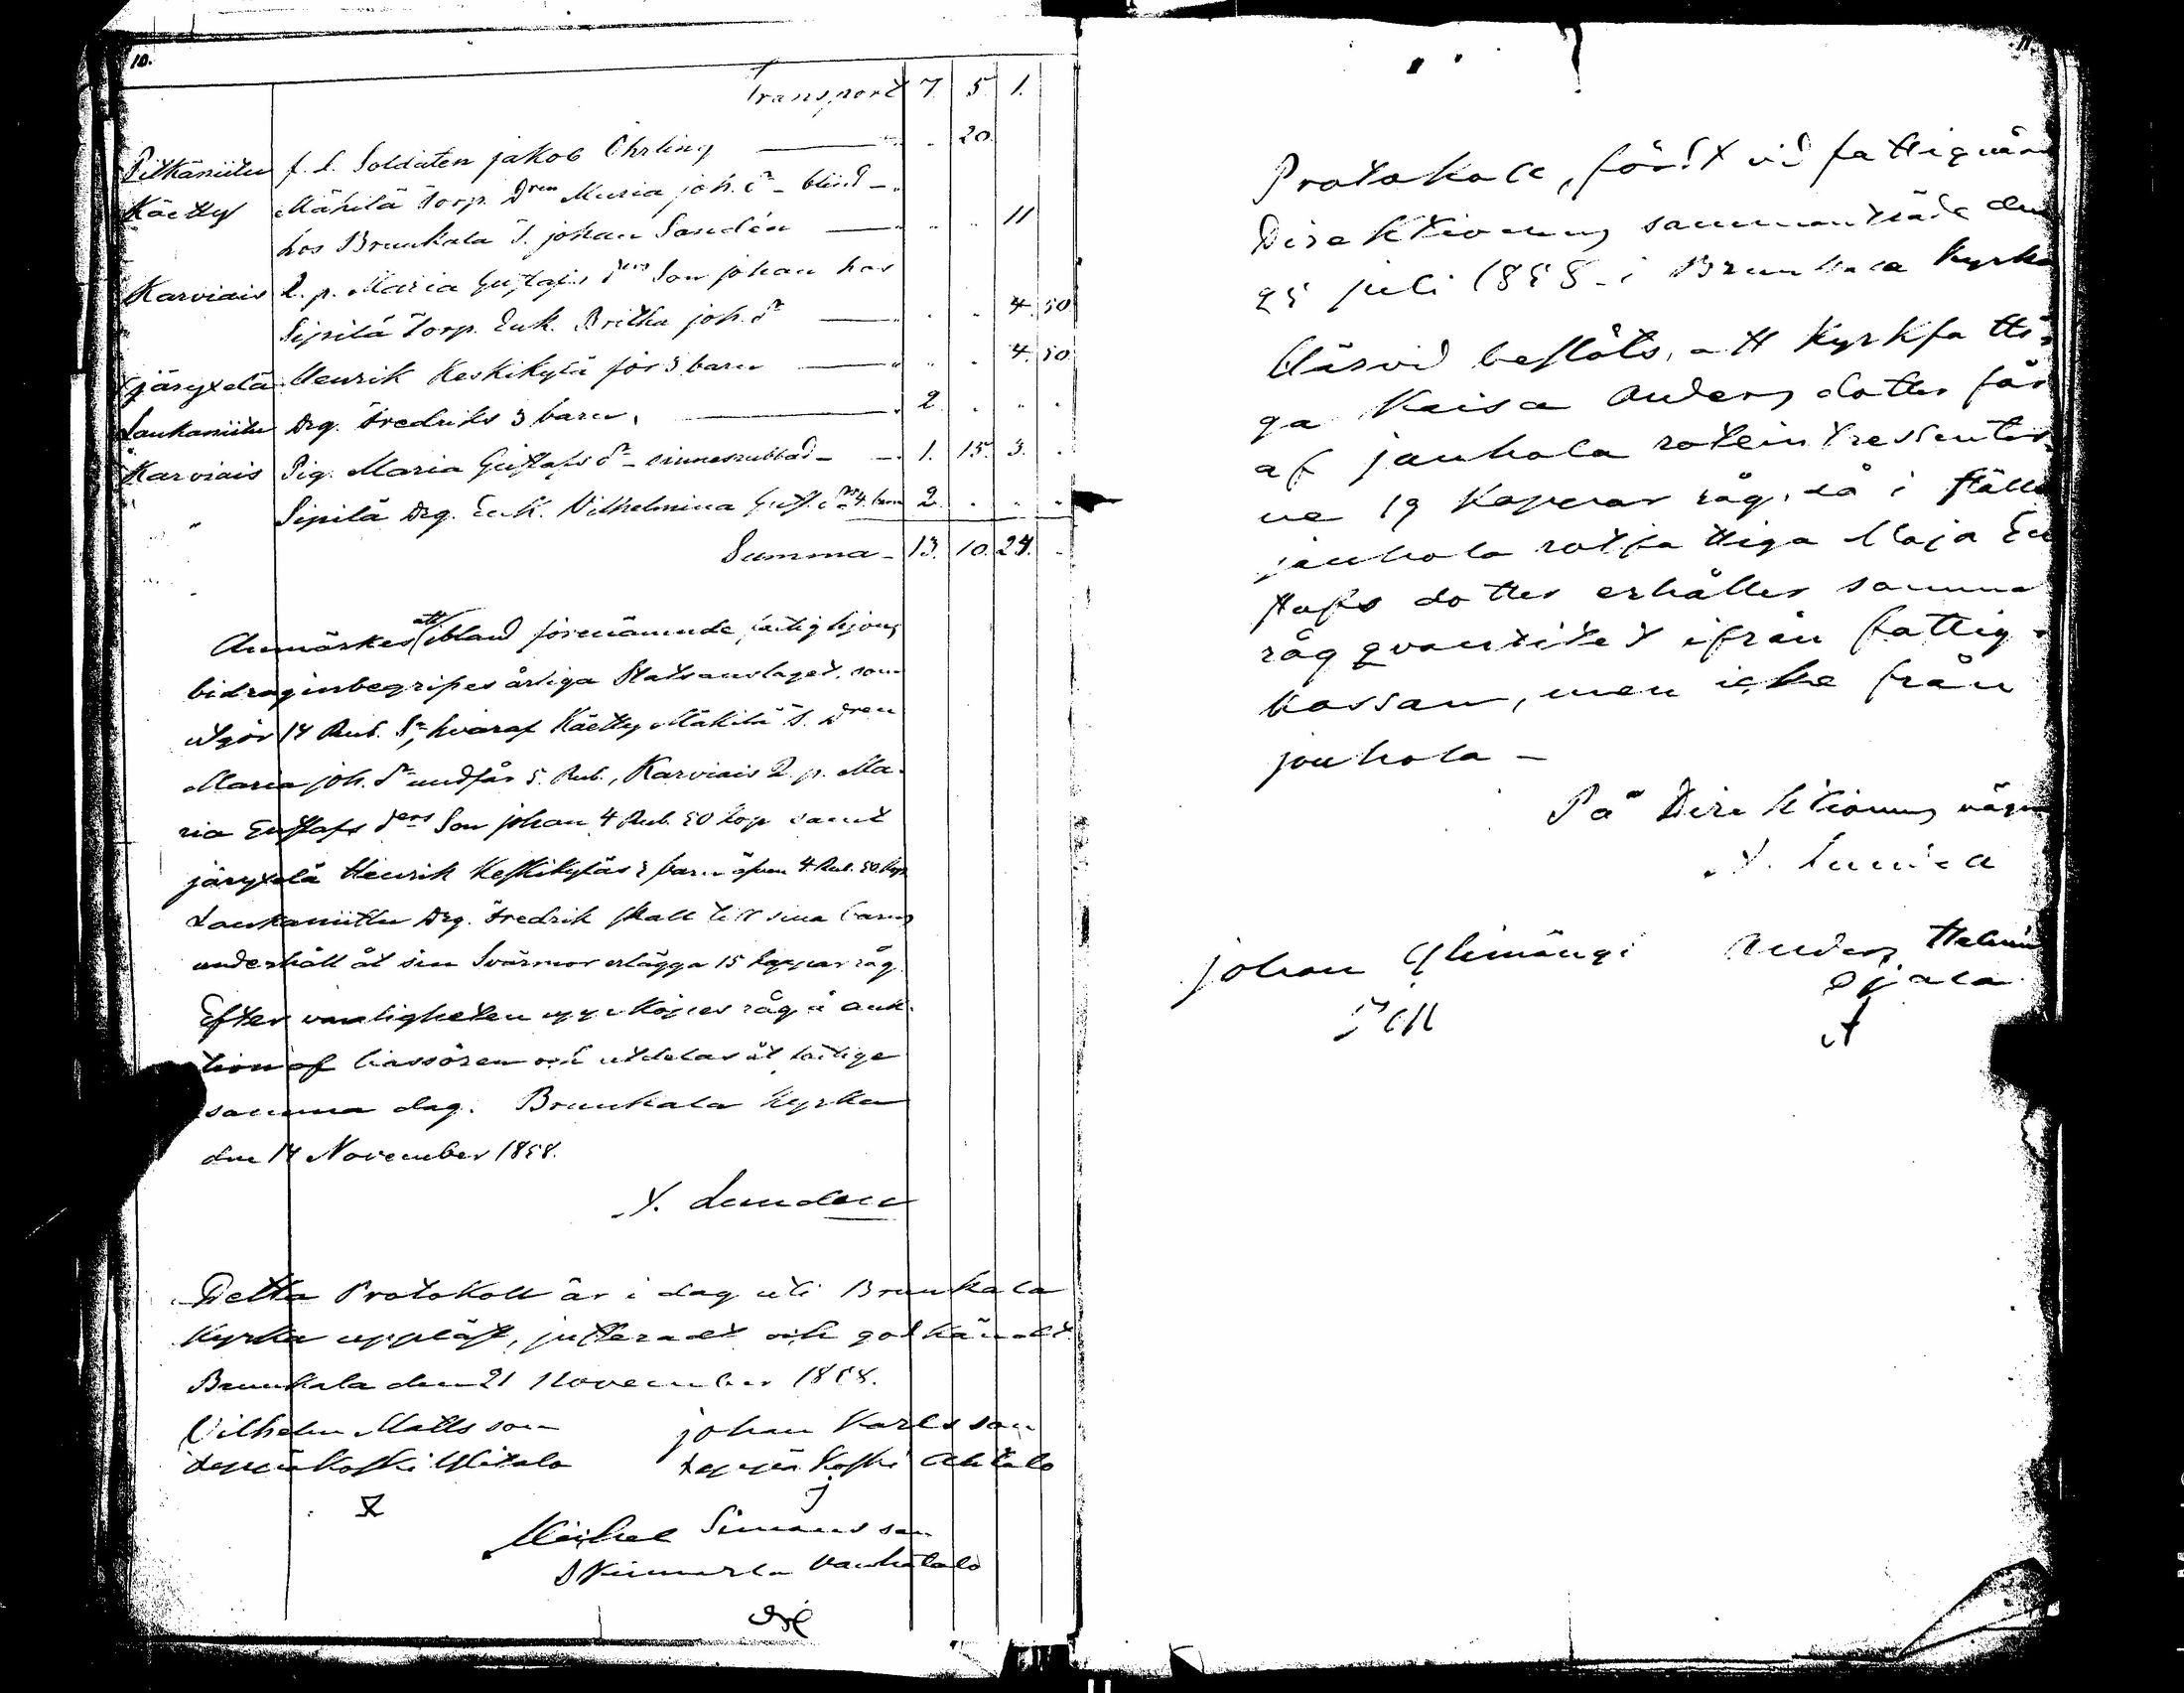 10.
Transport 7. 5. 1.
Pitkäniitu f. d. Soldaten jakob Öhrling — . 20.
Käetty Mäkilä Torp. Dren Maria joh. dr - blind -
hos Brunkala S. johan Sandén — . . 11
Karviais I. p. Maria Gustafs ders Son johan hos
Sipilä Torp. Enk. Britha joh. dr — . . 4. 50
järyxelä Henrik Keskikylä för 3 barn — . . 4. 50
Laukaniitu Drg. Fredriks 3 barn, — 2. . . .
Karviais Pig. Maria Gustafs dr - sinnesrubbad - 1. 15. 3. .
" Sipilä Drg. Enk. Vilhelmina Gust. drs 4. barn 2. . . .
Summa - 13. 10. 24. -
Anmärkes att ibland förenämnde fattighjons
bidrag inbegripes årliga Statsanslaget, som
utgör 14 Rub. Sr, hvaraf Käetty Mäkilä T. Dren
Maria joh. dr undfår 5. Rub., Karviais I. p. Ma-
ria Gustafs ders Son johan 4 Rub. 50 kop samt
järyxelä Henrik Keskikyläs 3 barn äfven 4. Rub. 50. kop
Laukaniittu Drg. Fredrik skall till sina barns
underhåll åt sin Svärmor erlägga 15 kappar råg.
Efter vanligheten upp köpes råg å auk-
tion af kassören och utdelas åt fattige
samma dag. Brunkala Kyrka
den 14 November 1858.
N. Lunden
Detta Protokoll är i dag uti Brunkala
Kyrka uppläst, justeradt och godkändt.
Brunkala den 21 November 1858.
Vilhelm Matts son johan Karls son
Leppäkoski Ylitalo Leppäkoski Alitalo
J
Michel Simons son
Skinnarla Vanhatalo
11.
Protokoll, fördt vid fattigvårds
Direktionens sammanträde den
25 juli 1858 - i Brunkala Kyrka
Härvid beslöts, att Kyrkfatti-
ga Kaisa Anders dotter får
af jauhola roteintressenter-
ne 19 Kappar råg, då i ställe
jauhola rotfattiga Maja Gu
stafs dotter erhåller samma
råg qvantitet ifrån fattig-
kassan, men icke från
jauhola -
På Direktionens vägnar
N. Lunden
johan Ylimängi Anders
Ojala
A